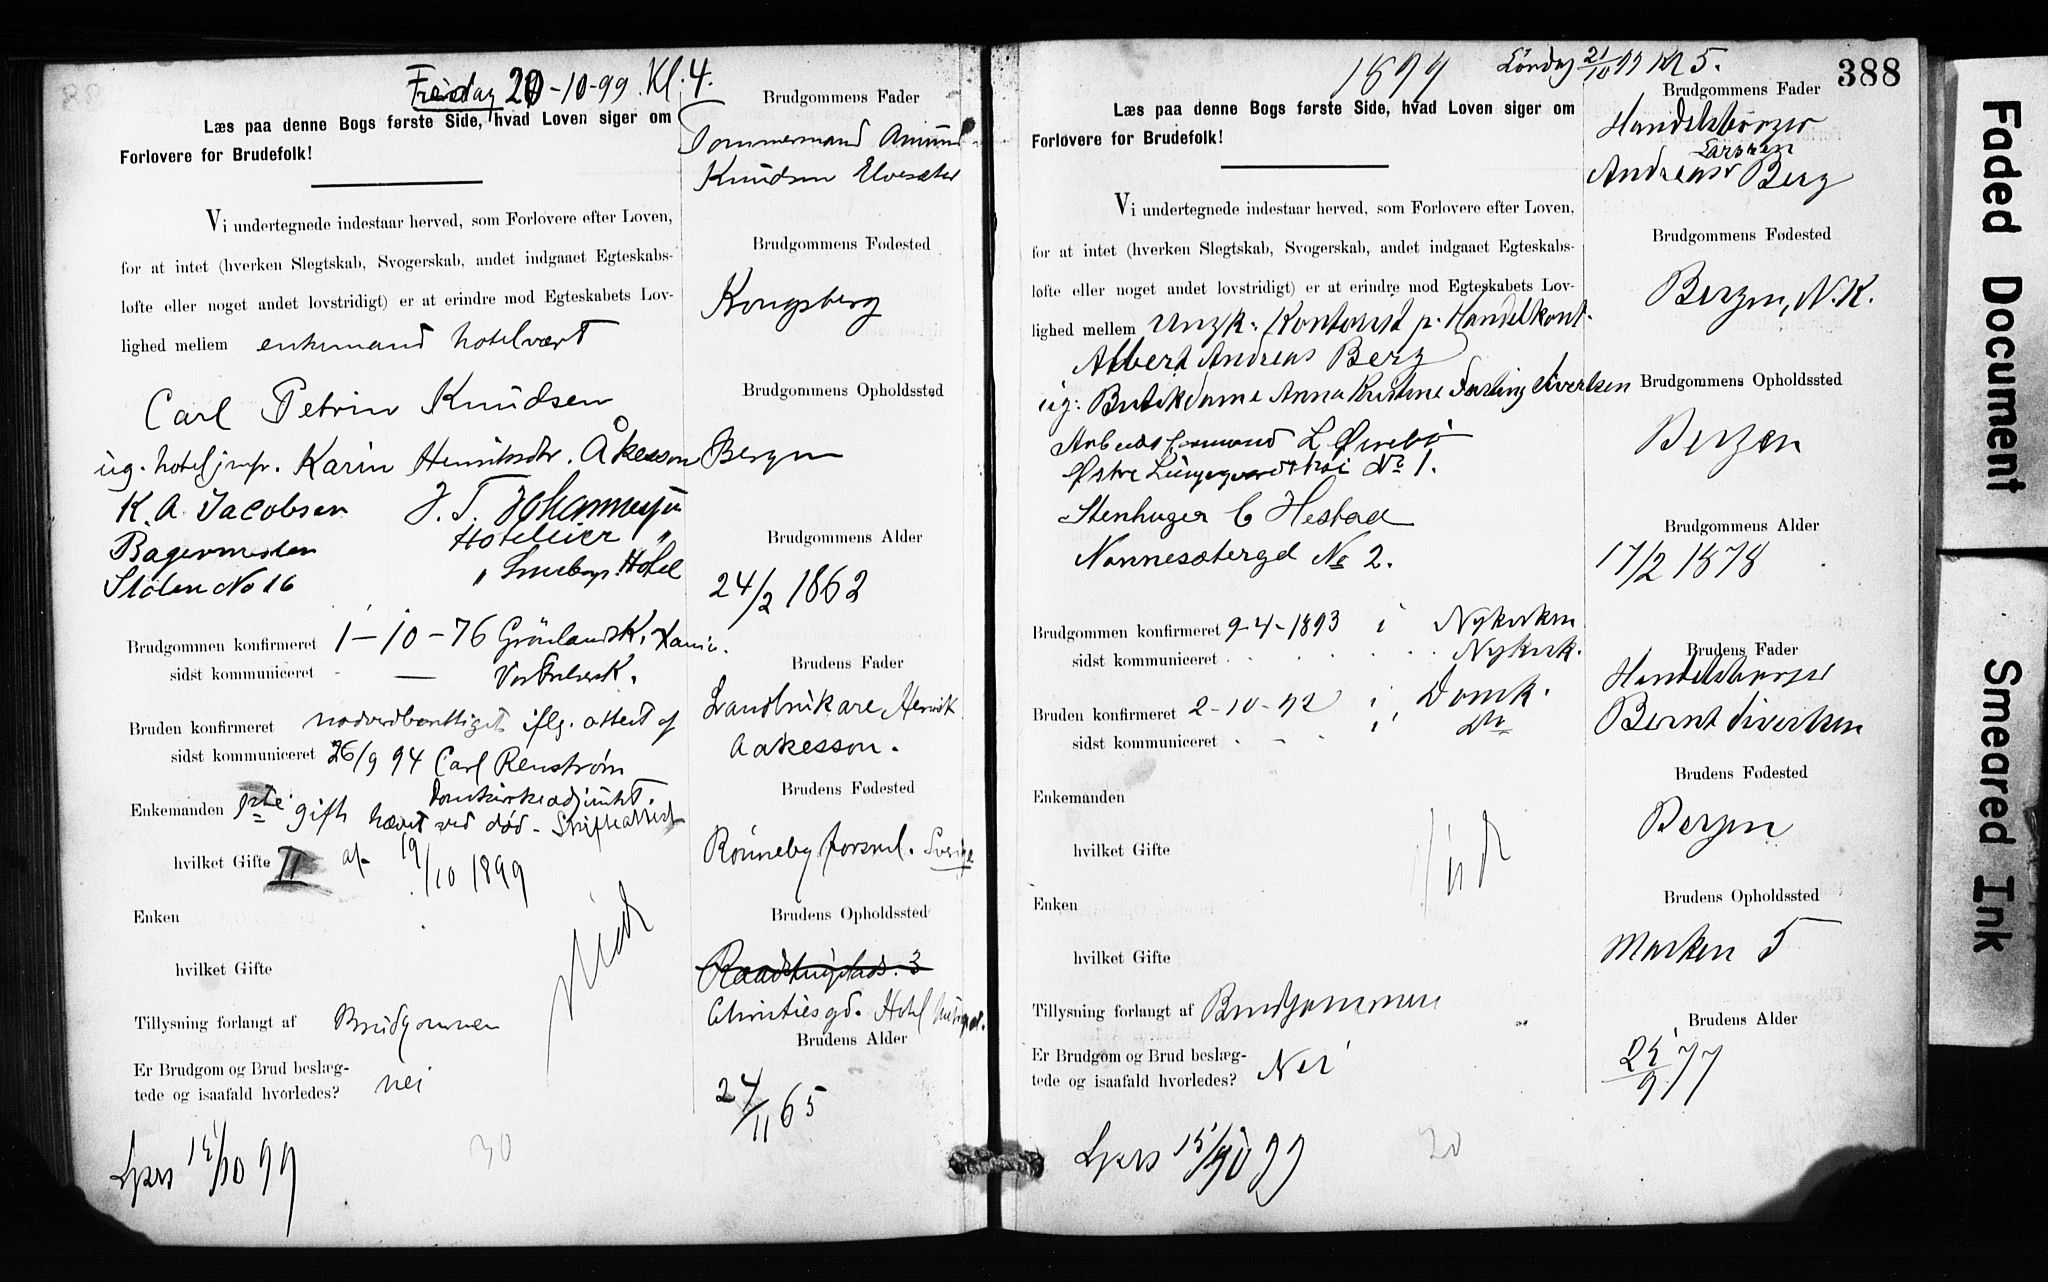 Fredag 20-10-99. Kl: 4.
Læs paa denne Bogs første Side, hvad Loven siger om
Forlovere for Brudefolk!
Vi undertegnede indestaar herved, som Forlovere efter Loven,
for at intet (hverken Slegtskab, Svogerskab, andet indgaaet Egteskabs-
løfte eller noget andet lovstridigt) er at erindre mod Egteskabets Lov-
lighed mellem enkemand hotelvært
Carl Petrin Knudsen
ug. hoteljmfr. Karin Henriksdtr. Åkesson
K. A. Jacobsen
Bagermester
Stølen No 16
J. T. Johannesen
Hoteleier
" Hotel
Brudgommen konfirmeret 1-10-76 Grönlands K.
sidst kommuniceret - —
Bruden konfirmeret nadverdberettiget iflg. attest af
sidst kommuniceret 26/9 94 Carl Renström
Domkirkeadjunkt.
Enkemanden 1ste gift hævet ved død - Skifteattest
hvilket Gifte II af 19/10 1899
Enken
hvilket Gifte
Viet
Tillysning forlangt af Brudgommen
Er Brudgom og Brud beslæg-
tede og isaafald hvorledes? nei
Lyses 15/10 99
30
Brudgommens Fader
Tømmermand Amund
Knudsen Elvesæter
Brudgommens Fødested
Kongsberg
Brudgommens Opholdssted
Bergen
Brudgommens Alder
24/2 1862
Brudens Fader
Landbrukare Henrik
Aakesson.
Brudens Fødested
Rönneby forsml. Sverige
Brudens Opholdssted
Raadhusplads. 3
Christiesgd. Hotel
Brudens Alder
24/11 65
1899
Lördag 21/10 99 Kl 5.
388
Læs paa denne Bogs første Side, hvad Loven siger om
Forlovere for Brudefolk!
Vi undertegnede indestaar herved, som Forlovere efter Loven,
for at intet (hverken Slegtskab, Svogerskab, andet indgaaet Egteskabs-
løfte eller noget andet lovstridigt) er at erindre mod Egteskabets Lov-
lighed mellem Ungk. Kontorist p. Handelkont.
Albert Andreas Berg
ug: Butikdame Anna Kristine Sivertsen
Arbeidsformand L Øvrebö
Østre Lungegaardskai No 1.
Stenhuger C Hestad
Nonnesætergd No 2.
Brudgommen konfirmeret 9-4-1893 i Nykirken
sidst kommuniceret Nykirk.
Bruden konfirmeret 2-10-92 i Domk.
sidst kommuniceret i Do
Enkemanden
hvilket Gifte
Enken
hvilket Gifte
Viet
Tillysning forlangt af Brudgommen
Er Brudgom og Brud beslæg-
tede og isaafald hvorledes? Nei
Lyses 15/10 99
20
Brudgommens Fader
Handelsborger
Larsen
Andreas Berg
Brudgommens Fødested
Bergen, N.K.
Brudgommens Opholdssted
Bergen
Brudgommens Alder
17/2 1878
Brudens Fader
Handelsborger
Bernt Sivertsen
Brudens Fødested
Bergen
Brudens Opholdssted
Marken 5
Brudens Alder
25/9 77
Faded Document
Smeared Ink